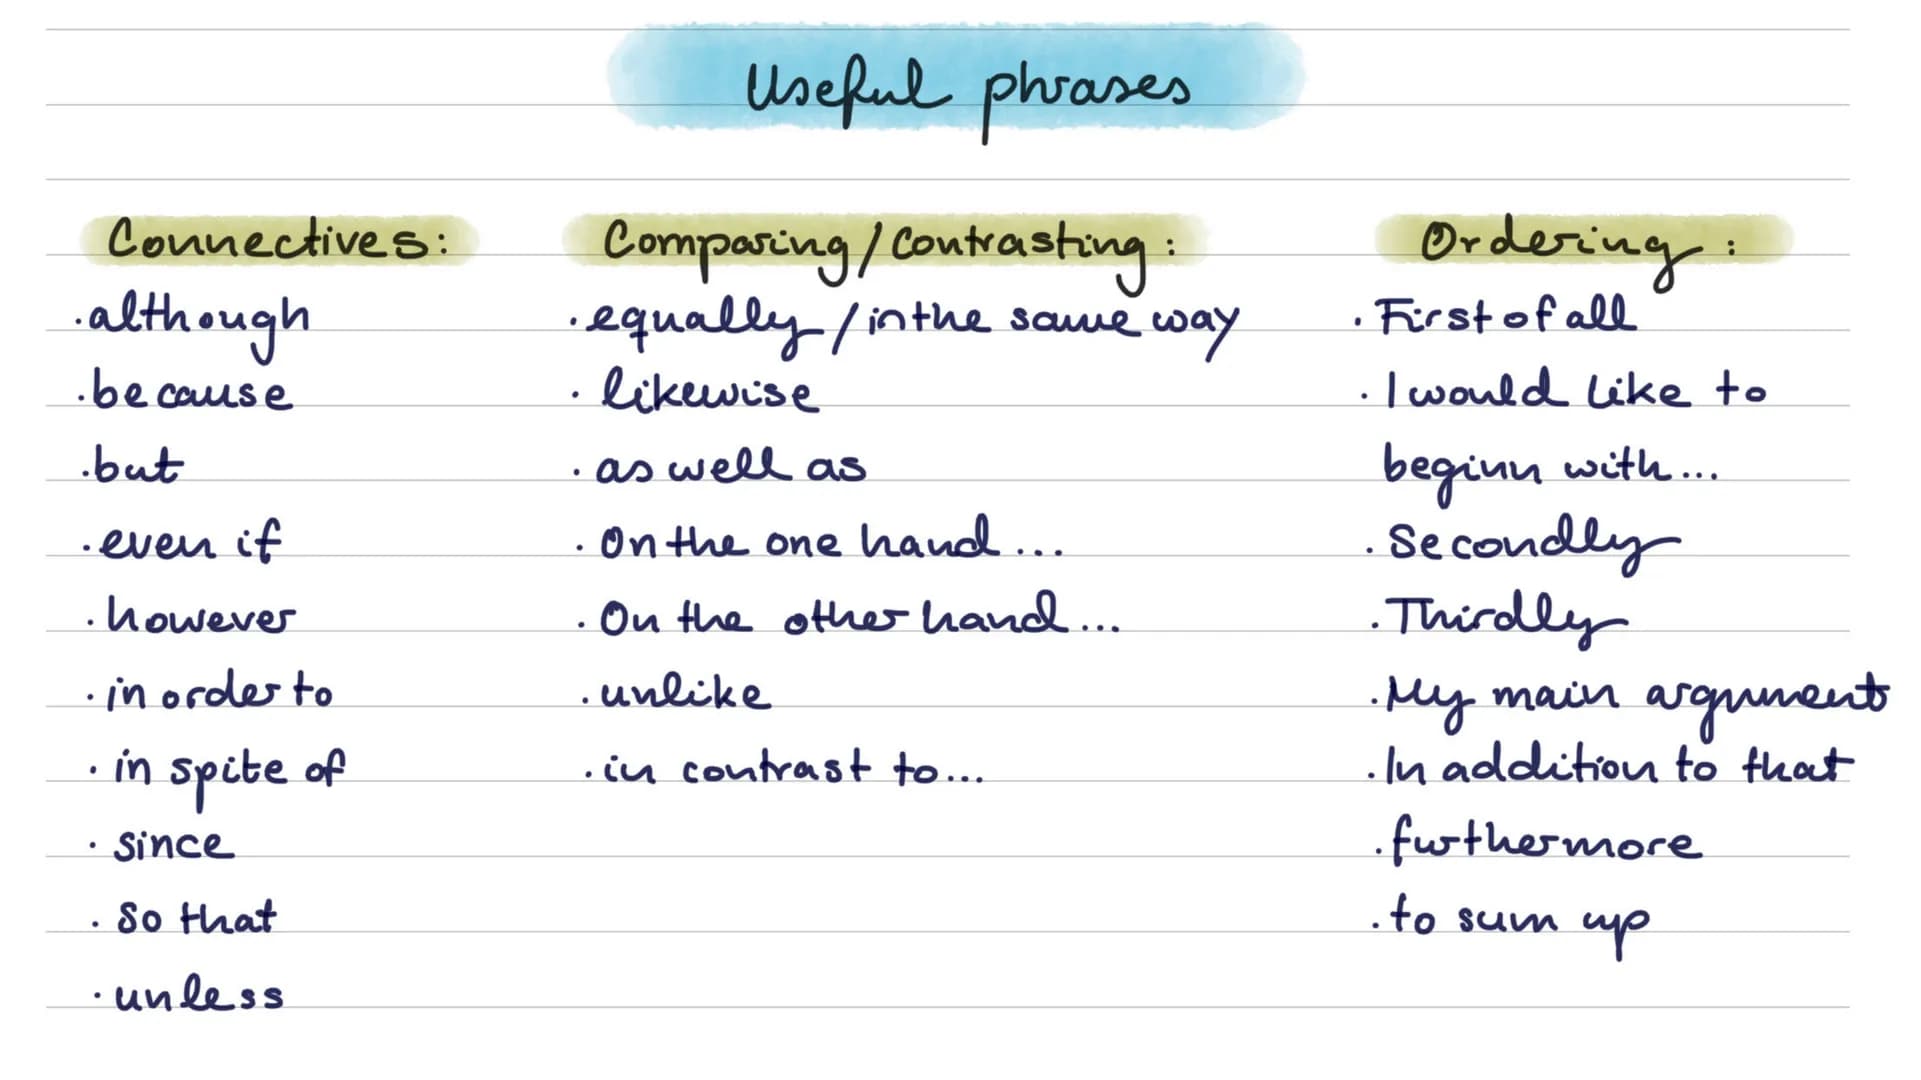 Useful phrases
Connectives:
· although
· because
· but
· even if
· however
· in order to
· in spite of
· since
· so that
· unless
Comparing/contrasting:
· equally / in the same way
· likewise
· as well as
· On the one hand...
· On the other hand...
· unlike
· in contrast to...
Ordering:
· First of all
· I would like to
beginn with...
· Secondly
· Thirdly
· My main argument
· In addition to that
· furthermore
· to sum up